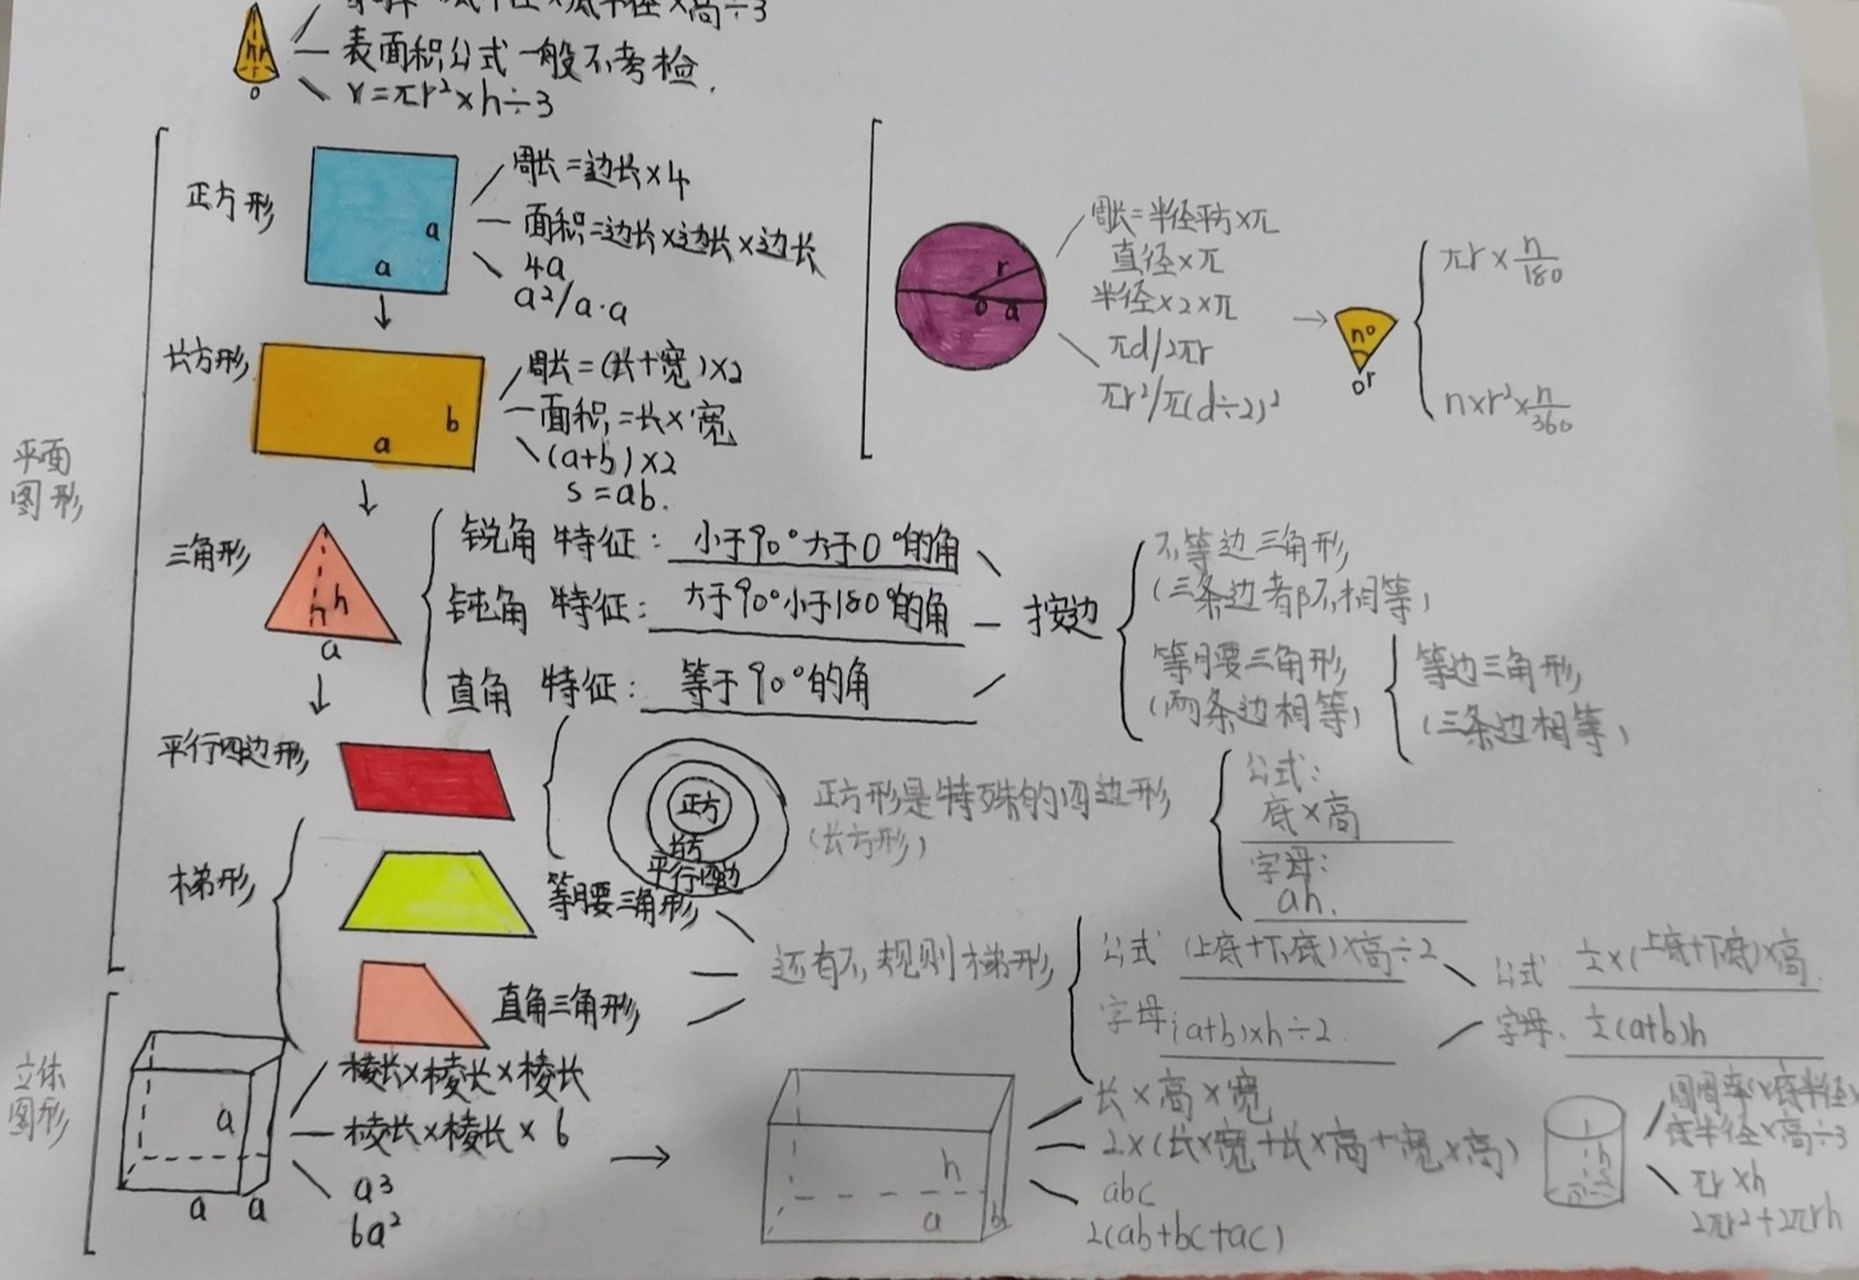 ×高÷3
表面积公式一般不考检.
V=πr²×h÷3
hr
o
平面
图形
正方形
a
a
周长=边长×4
面积=边长×边长×边长
4a
a²/a·a
长方形
b
a
周长=(长+宽)×2
面积=长×宽
(a+b)×2
s=ab.
r
o d
周长=半径平方×π
直径×π
半径×2×π
πd/2πr
πr²/π(d÷2)²
n°
or
πr×n/180
n×r²×n/360
三角形
h
a
锐角 特征: 小于90°大于0°的角
钝角 特征: 大于90°小于180°的角
直角 特征: 等于90°的角
按边
不等边三角形
(三条边都不相等)
等腰三角形
(两条边相等)
等边三角形
(三条边相等)
平行四边形
正方
长方
平行四边
正方形是特殊的四边形
(长方形)
公式:
底×高
字母:
ah.
梯形
等腰三角形
直角三角形
还有不规则梯形
公式 (上底+下底)×高÷2
字母:(a+b)×h÷2.
公式 ½×(上底+下底)×高
字母. ½(a+b)h
立体
图形
a
a a
棱长×棱长×棱长
棱长×棱长×6
a³
6a²
h
a b
长×高×宽
2×(长×宽+长×高+宽×高)
abc
2(ab+bc+ac)
h
圆周率×底半径×
底半径×高÷3
πr×h
2πr²+2πrh